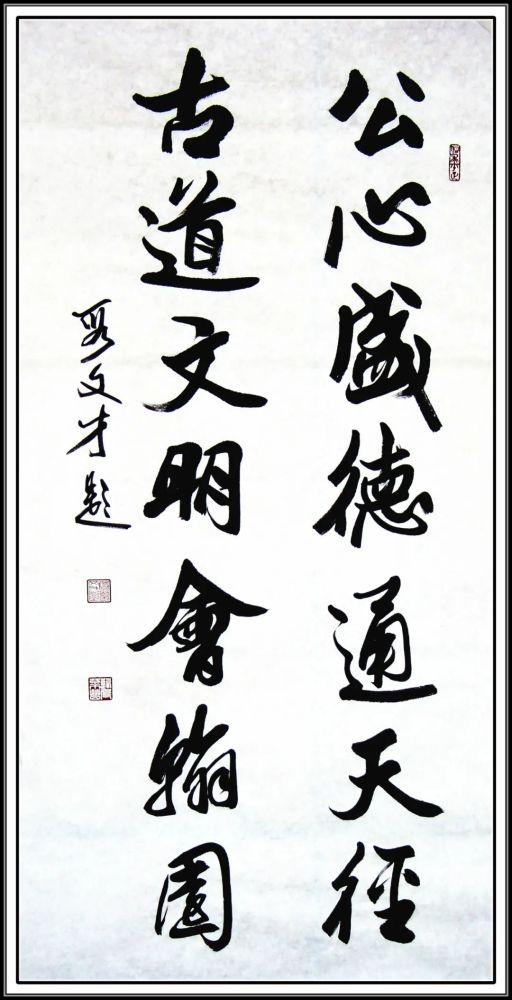 公心盛德通天徑
古道文明會翰園
段文才題